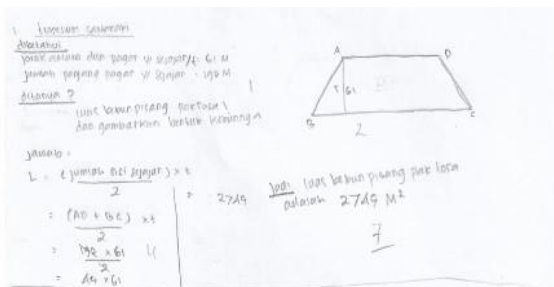 Diketahui
jarak antara dua pagar yg sejajar/t : 61 M
jumlah panjang pagar yg sejajar : 190 M
ditanya ?
luas kebun pisang pak tosa
dan gambarkan bentuk kebunnya
jawab :
L = (jumlah sisi sejajar) x t
2
= (AD + BC) x t
2
x 61
2
= x 61
= 2749
A
D
B
C
T
61
2
4
Jadi luas kebun pisang pak tosa
adalah 2749 M²
7